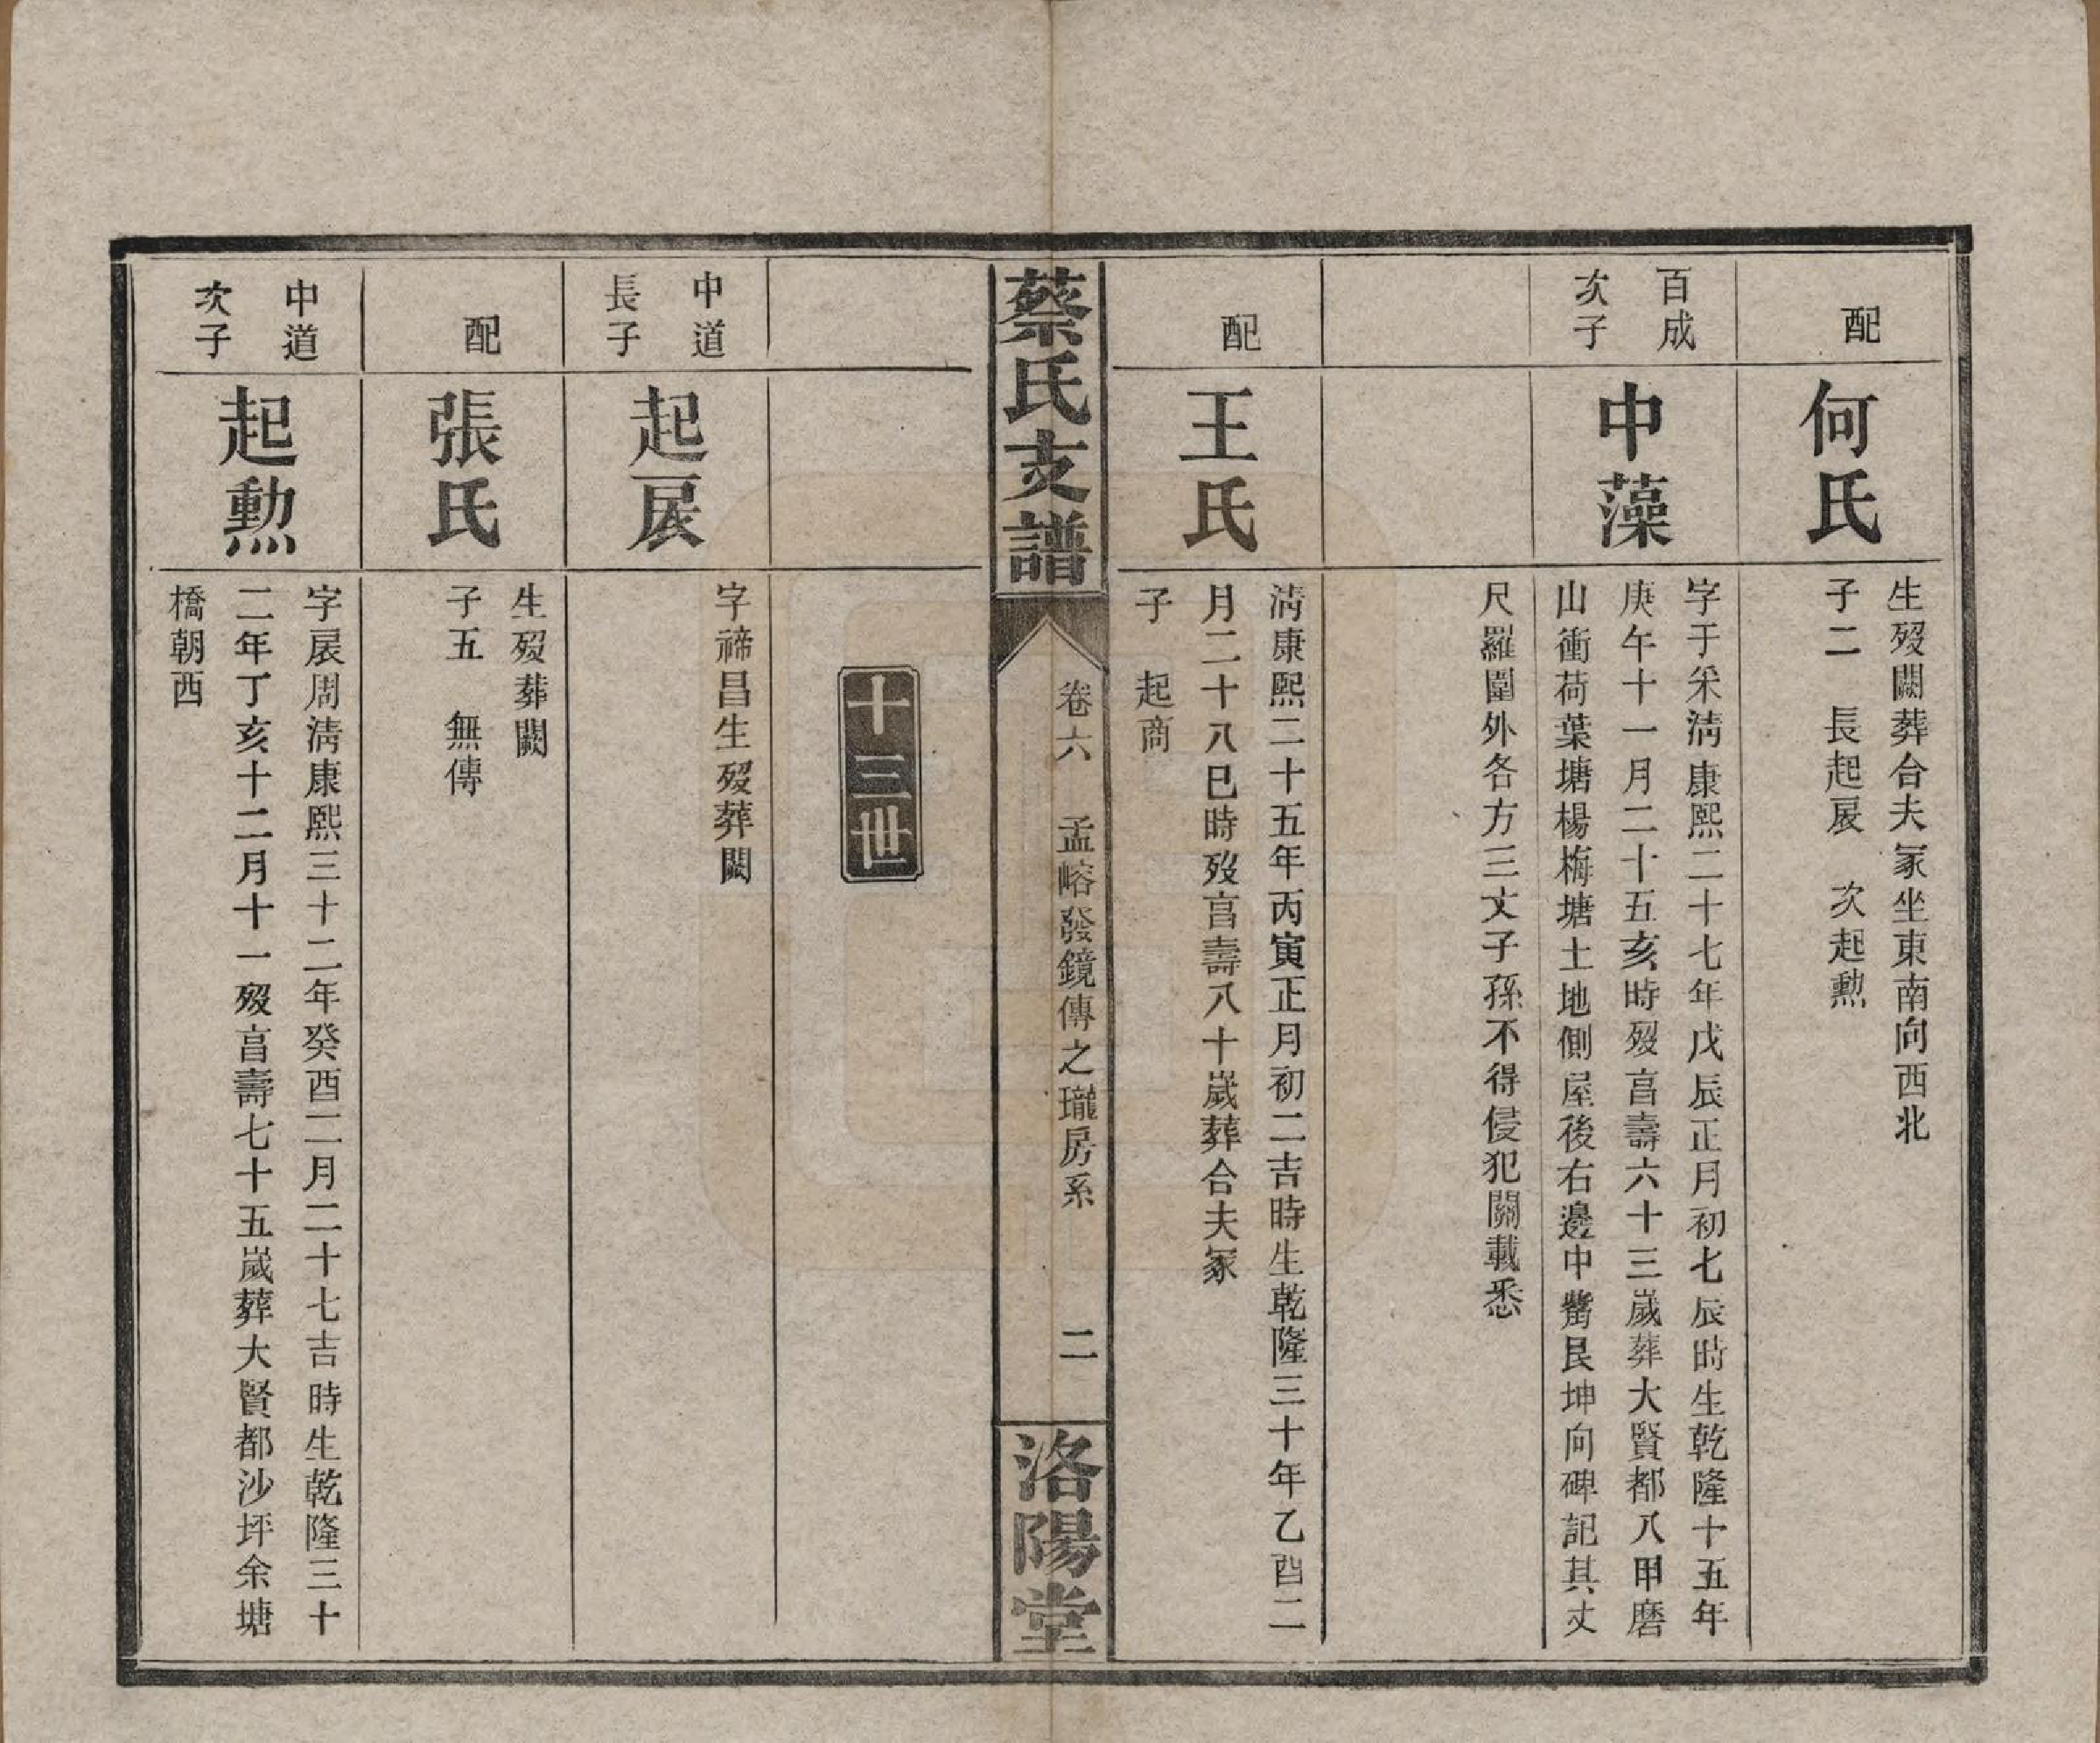 配
何氏
生歿闕葬合夫冢坐東南向西北
子二　長起扆　次起勲
百成
次子
中藻
字于采淸康熙二十七年戊辰正月初七辰時生乾隆十五年
庚午十一月二十五亥時歿享壽六十三嵗葬大賢都八甲磨
山衝荷葉塘楊梅塘土地側屋後右邊中觜艮坤向碑記其丈
尺羅圍外各方三丈子孫不得侵犯關載悉
配
王氏
淸康熙二十五年丙寅正月初二吉時生乾隆三十年乙酉二
月二十八巳時歿享壽八十嵗葬合夫冢
子　起商
蔡氏支譜
卷六　孟嵱發鏡傳之瓏房系
二
洛陽堂
十三世
中道
長子
起扆
字褅昌生歿葬闕
配
張氏
生歿葬闕
子五　無傳
中道
次子
起勲
字扆周淸康熙三十二年癸酉二月二十七吉時生乾隆三十
二年丁亥十二月十一歿享壽七十五嵗葬大賢都沙坪余塘
橋朝西